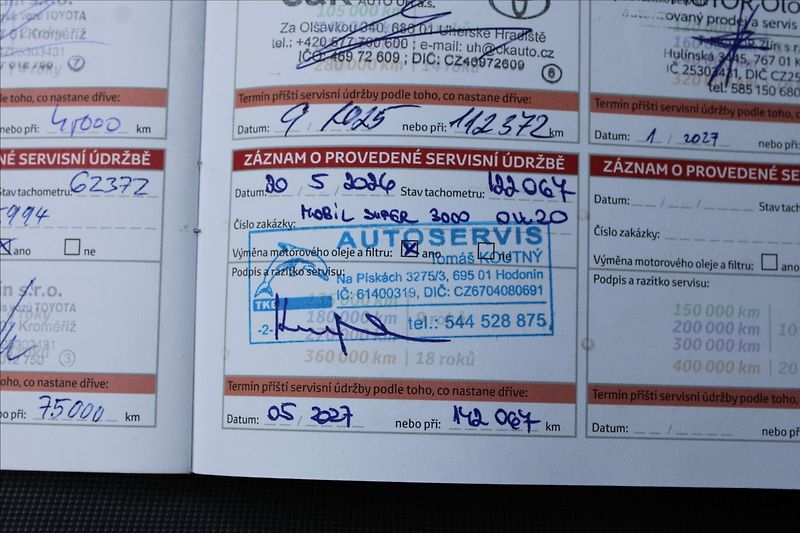 075131
105 000 km
AUTO UH a.s.
Za Olšávkou 340, 686 01 Uherské Hradiště
tel.: +420 577 700 600 ; e-mail: uh@ckauto.cz
IČO: 469 72 609 ; DIČ: CZ46972609
280 000 km | 14 roků
6
Termín příští servisní údržby podle toho, co nastane dříve:
Datum: 9 / 2025 nebo při: 112372 km
ZÁZNAM O PROVEDENÉ SERVISNÍ ÚDRŽBĚ
Datum: 20 / 5 / 2026 Stav tachometru: 122 067
Číslo zakázky: MOBIL SUPER 3000 0W.20
AUTOSERVIS
Výměna motorového oleje a filtru: ano ne
Tomáš KOUTNÝ
Podpis a razítko servisu:
Na Pískách 3275/3, 695 01 Hodonín
IČ: 61400319, DIČ: CZ6704080691
TKE
180 000 km
-2-
tel.: 544 528 875
270 000 km
360 000 km | 18 roků
Termín příští servisní údržby podle toho, co nastane dříve:
Datum: 05 / 2027 nebo při: 142 067 km
in s.r.o.
vozů TOYOTA
01 Kroměříž
7
le toho, co nastane dříve:
ní při: 45000 km
NÉ SERVISNÍ ÚDRŽBĚ
Stav tachometru: 62372
ano ne
in s.r.o.
vozů TOYOTA
Kroměříž
3
toho, co nastane dříve:
o při: 75000 km
Autorizovaný prodej a servis
Hulínská 3445, 767 01 K
IČ 25303431, DIČ CZ25
tel. 585 150 680
Termín příští servisní údržby podle toho, co nasta
Datum: 1 / 2027 nebo př
ZÁZNAM O PROVEDENÉ SERVISNÍ ÚD
Datum: Stav tachom
Číslo zakázky:
Výměna motorového oleje a filtru: ano
Podpis a razítko servisu:
150 000 km
200 000 km | 10
300 000 km
400 000 km | 20
Termín příští servisní údržby podle toho, co
Datum: nebo př